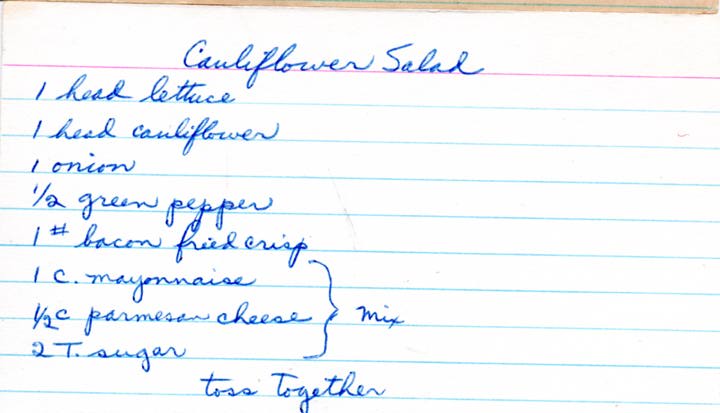 Cauliflower Salad
1 head lettuce
1 head cauliflower
1 onion
1/2 green pepper
1# bacon fried crisp
1 c. mayonnaise
1/2 c parmesan cheese } mix
2 T. sugar
toss together